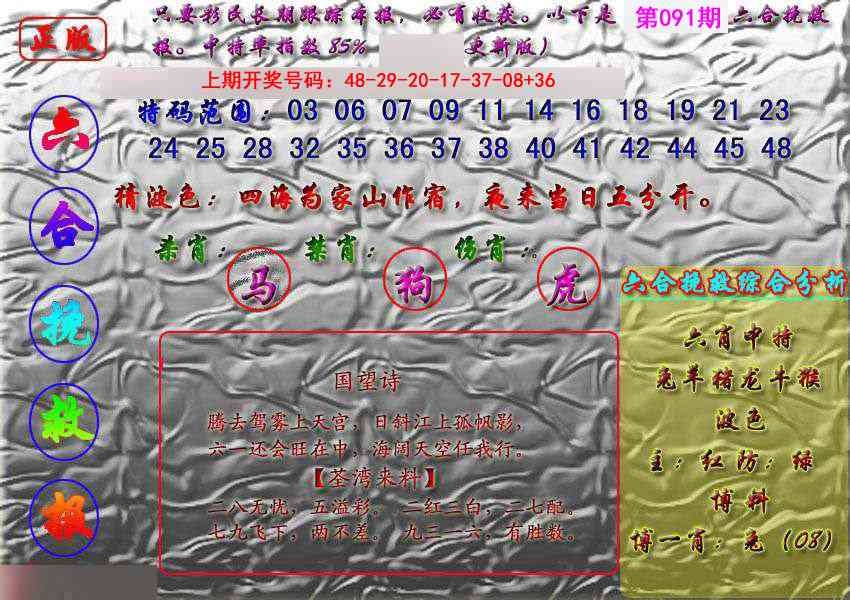 正版
只要彩民长期跟踪本报，必有收获。以下是 第091期 六合挽救
报。中特率指数85% 更新版）
上期开奖号码：48-29-20-17-37-08+36
特码范围：03 06 07 09 11 14 16 18 19 21 23
24 25 28 32 35 36 37 38 40 41 42 44 45 48
猜波色：四海为家山作宿，夜来当日五分开。
杀肖： 禁肖： 伤肖：
马 狗 虎
六合挽救报
国望诗
腾去驾雾上天宫，日斜江上孤帆影，
六一还会旺在中，海阔天空任我行。
【荃湾来料】
二八无忧，五溢彩。 二红三白，二七配。
七九飞下，两不差。 九三一六，有胜数。
六合挽救综合分析
六肖中特
兔羊猪龙牛猴
波色
主：红防：绿
博料
博一肖：兔（08）